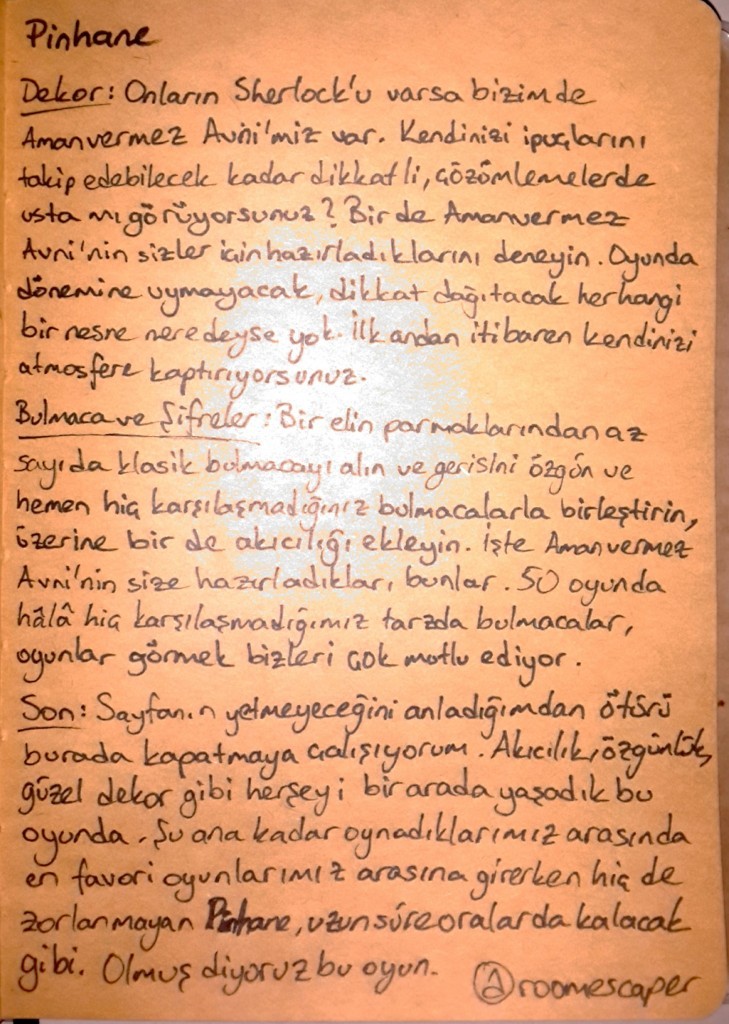 Pinhane
Dekor: Onların Sherlock'u varsa bizim de
Amanvermez Avni'miz var. Kendinizi ipuçlarını
takip edebilecek kadar dikkatli, çözümlemelerde
usta mı görüyorsunuz? Bir de Amanvermez
Avni'nin sizler için hazırladıklarını deneyin. Oyunda
dönemine uymayacak, dikkat dağıtacak herhangi
bir nesne neredeyse yok. İlk andan itibaren kendinizi
atmosfere kaptırıyorsunuz.
Bulmaca ve Şifreler: Bir elin parmaklarından az
sayıda klasik bulmacayı alın ve gerisini özgün ve
hemen hiç karşılaşmadığınız bulmacalarla birleştirin,
üzerine bir de akıcılığı ekleyin. İşte Amanvermez
Avni'nin size hazırladıkları bunlar. 50 oyunda
hâlâ hiç karşılaşmadığımız tarzda bulmacalar,
oyunlar görmek bizleri çok mutlu ediyor.
Son: Sayfanın yetmeyeceğini anladığımdan ötürü
burada kapatmaya çalışıyorum. Akıcılık, özgünlük,
güzel dekor gibi herşeyi bir arada yaşadık bu
oyunda. Şu ana kadar oynadıklarımız arasında
en favori oyunlarımız arasına girerken hiç de
zorlanmayan Pinhane, uzun süre oralarda kalacak
gibi. Olmuş diyoruz bu oyun. @roomescaper